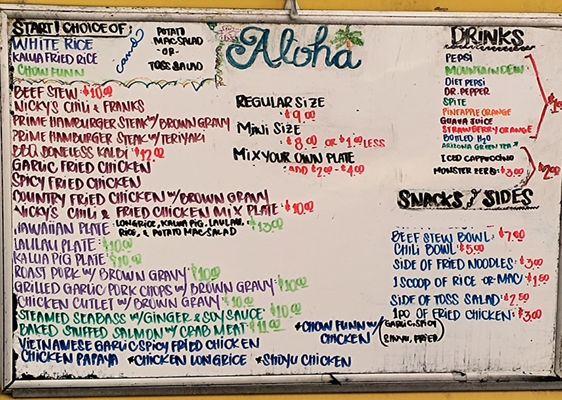 START! CHOICE OF;
WHITE RICE
KALUA FRIED RICE
CHOW FUNN
and
POTATO
MAC SALAD
-OR-
TOSS SALAD
Aloha
BEEF STEW $10.00
NICKY'S CHILI & FRANKS
PRIME HAMBURGER STEAK W/ BROWN GRAVY
PRIME HAMBURGER STEAK W/ TERIYAKI
BBQ BONELESS KALBI $12.00
GARLIC FRIED CHICKEN
SPICY FRIED CHICKEN
COUNTRY FRIED CHICKEN W/ BROWN GRAVY
NICKY'S CHILI & FRIED CHICKEN MIX PLATE $10.00
HAWAIIAN PLATE LONG RICE, KALUA PIG, LAULAU, RICE, & POTATO MAC SALAD $13.00
LAULAU PLATE $10.00
KALUA PIG PLATE $10.00
ROAST PORK W/ BROWN GRAVY $10.00
GRILLED GARLIC PORK CHOPS W/ BROWN GRAVY $10.00
CHICKEN CUTLET W/ BROWN GRAVY $10.00
STEAMED SEABASS W/ GINGER & SOY SAUCE $10.00
BAKED STUFFED SALMON W/ CRAB MEAT $11.00
VIETNAMESE GARLIC SPICY FRIED CHICKEN
CHICKEN PAPAYA *CHICKEN LONGRICE *SHOYU CHICKEN
*CHOW FUNN W/ CHICKEN (GARLIC, SPICY
FRIED)
REGULAR SIZE
$9.00
MINI SIZE
$8.00 OR $1.00 LESS
MIX YOUR OWN PLATE
ADD $2.00 - $4.00
DRINKS
PEPSI
MOUNTAIN DEW
DIET PEPSI
DR. PEPPER
SPITE
PINEAPPLE ORANGE
GUAVA JUICE
STRAWBERRY ORANGE
BOTTLED H2O
ARIZONA GREEN TEA
ICED CAPPUCCINO
$2.00
MONSTER $3.00
SNACKS & SIDES
BEEF STEW BOWL: $7.00
CHILI BOWL: $5.00
SIDE OF FRIED NOODLES: $3.00
1 SCOOP OF RICE OR MAC: $1.50
SIDE OF TOSS SALAD: $2.50
1 PC OF FRIED CHICKEN: $3.00